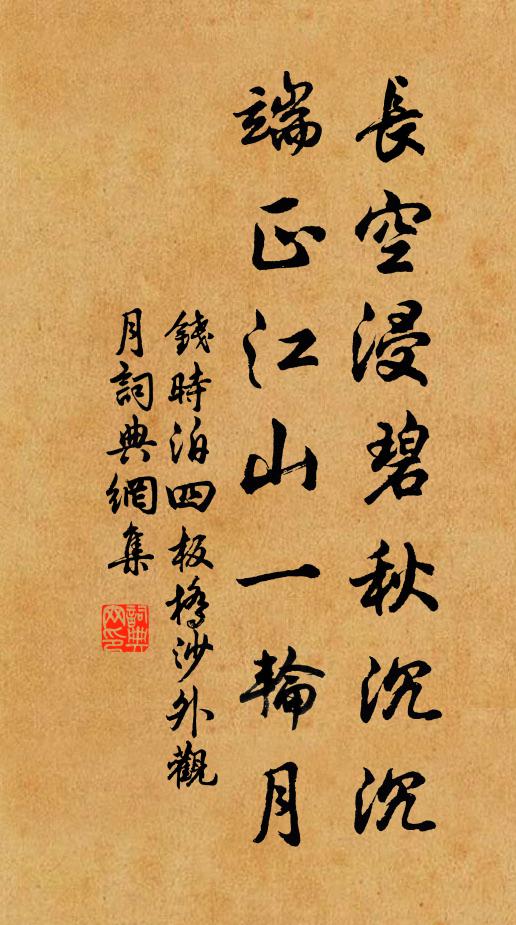 長空浸碧秋沉沉
端正江山一輪月
錢時泊四板橋沙外觀
月詞典網集
詞典网印